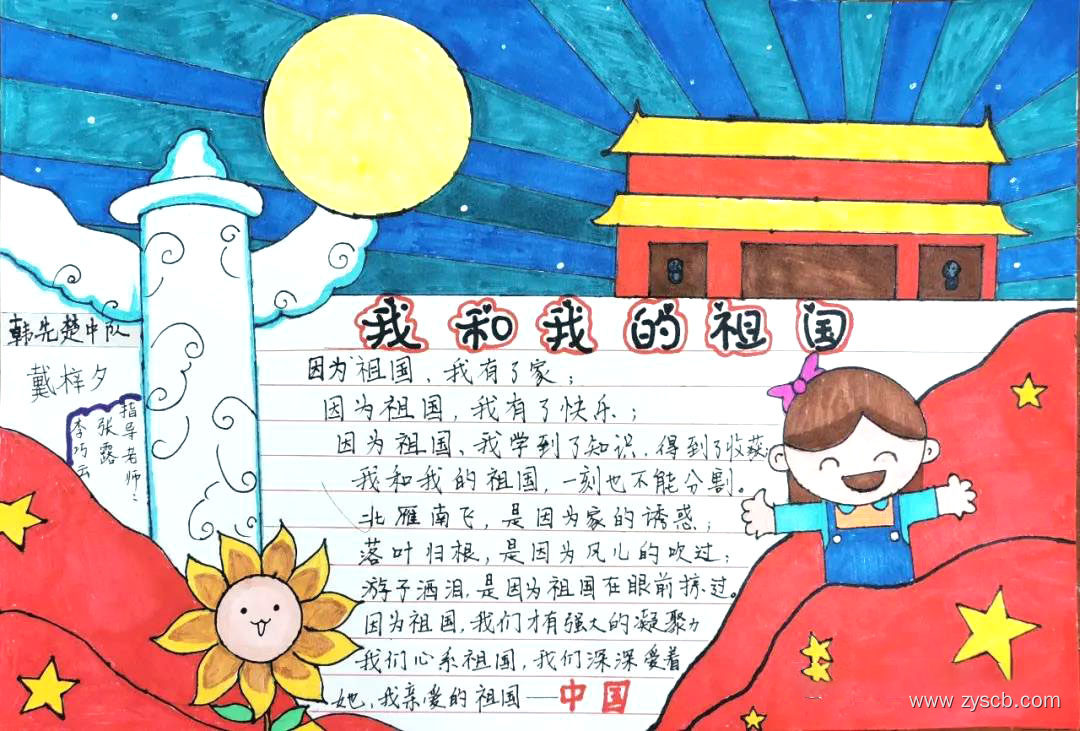 我和我的祖国
韩先楚中队
戴梓夕
指导老师：
张露
李巧云
因为祖国、我有了家；
因为祖国，我有了快乐；
因为祖国、我学到了知识、得到了收获；
我和我的祖国，一刻也不能分割。
北雁南飞，是因为家的诱惑；
落叶归根，是因为风儿的吹过；
游子洒泪，是因为祖国在眼前掠过。
因为祖国，我们才有强大的凝聚力
我们心系祖国，我们深深爱着
她，我亲爱的祖国——中国
www.zyscb.com